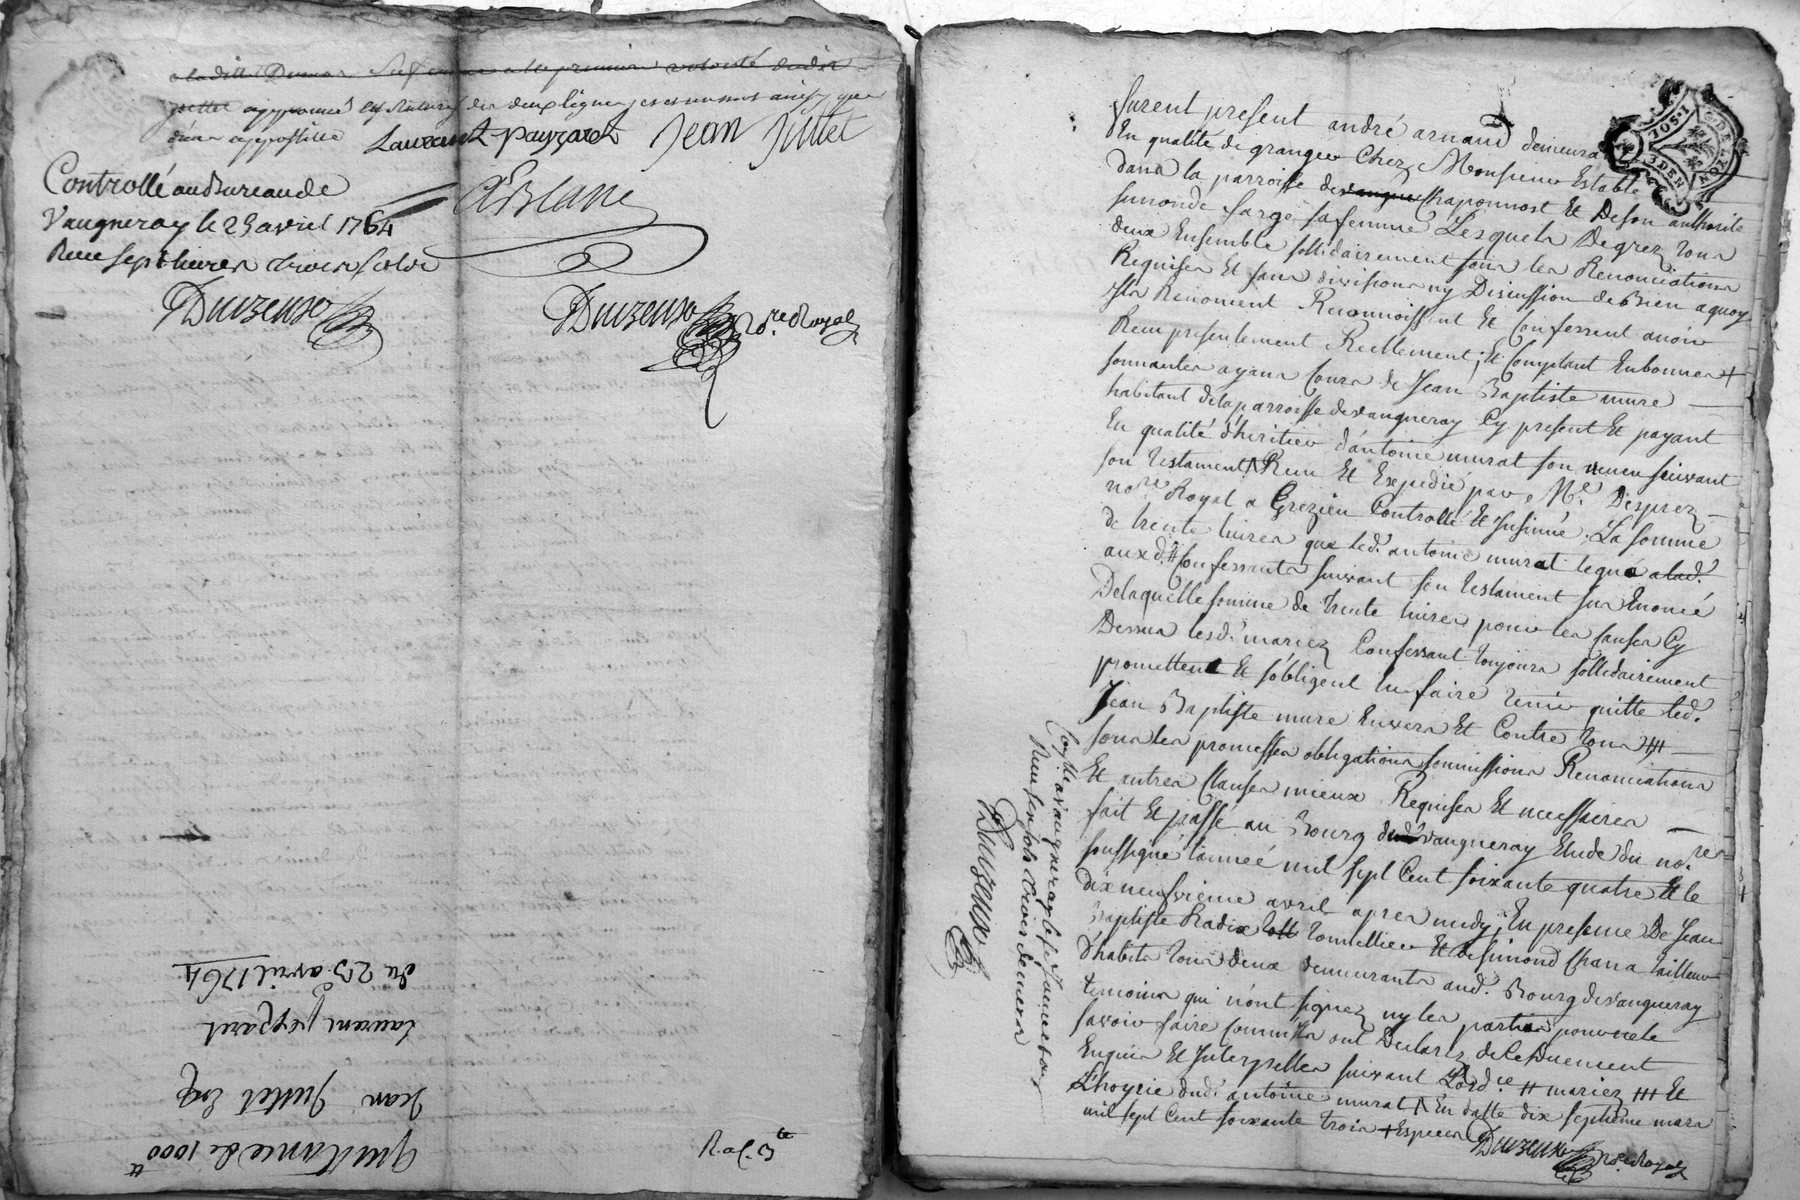 a laditte Dumas sa femme a la premiere volonté dudit
jullet approuvé les ratures des deux lignes cy dessus ainsy que
dune appostille Laurent payzaret Jean Jullet
Controllé au Bureau de
Vaugneray le 29 avril 1764
Receu sept livres trois sols
Duizeux Duizeux no.re Royal
du 23 avril 1764
Laurent peyzaret
Jean Jullet
Quittance de 1000 tt
R. al. 5
furent present andré arnaud demeurant
En qualité de granger Chez Monsieur Estable
dans la parroisse de vaugne Chaponnost Et De son authorité
simonde farge sa femme Lesquels De grez tous
deux Ensemble sollidairement sous les Renonciations
Requises Et sans divisions ny Discussion de Bien a quoy
Ils Renoncent Reconnoissent Et Confessent avoir
Receu presentement Reellement, Et Comptant En bonnes +
sonnantes ayans Cours de Jean Baptiste mure
habitant de la parroisse de vaugneray Cy present Et payant
En qualité d'heritier d'antoine murat son neveu suivant
son testament ∧ Receu Et Expedié par Me. Desprez
no.re Royal a Grezieu Controllé Et Insinué. La somme
de trente livres que led. antoine murat legua a lad.
aux d. # Confessants suivant son testament sus Enoncé
De laquelle somme de trente livres pour les causes Cy
Dessus lesd. mariez Confessant toujours sollidairement
promettent Et s'obligent En faire tenir quitte led.
Jean Baptiste mure Envers Et Contre tous ###
sous les promesses obligations soumissions Renonciations
Et autres Clauses mieux Requises Et necessaires
fait Et passé au Bourg dud. vaugneray Etude du no.re
soussigné l'année mil sept Cent soixante quatre Et le
dix neufvieme avril apres midy, En presence De Jean
Baptiste Radix tonnellier Et de simond Chana tailleur
d'habits tous deux demeurants aud. Bourg de vaugneray
temoins qui n'ont signez ny les parties pour ne le
savoir faire comme Ils ont Declarez de Ce Duement
Enquis Et Interpellez suivant L'ord.ce # mariez ### Et
L'hoyrie dud. antoine murat ∧ En datte dix septieme mars
mil sept Cent soixante trois + Especes
Duizeux no.re Royal
Con.lle a vaugneray le
Receu six sols trois deniers
Duizeux